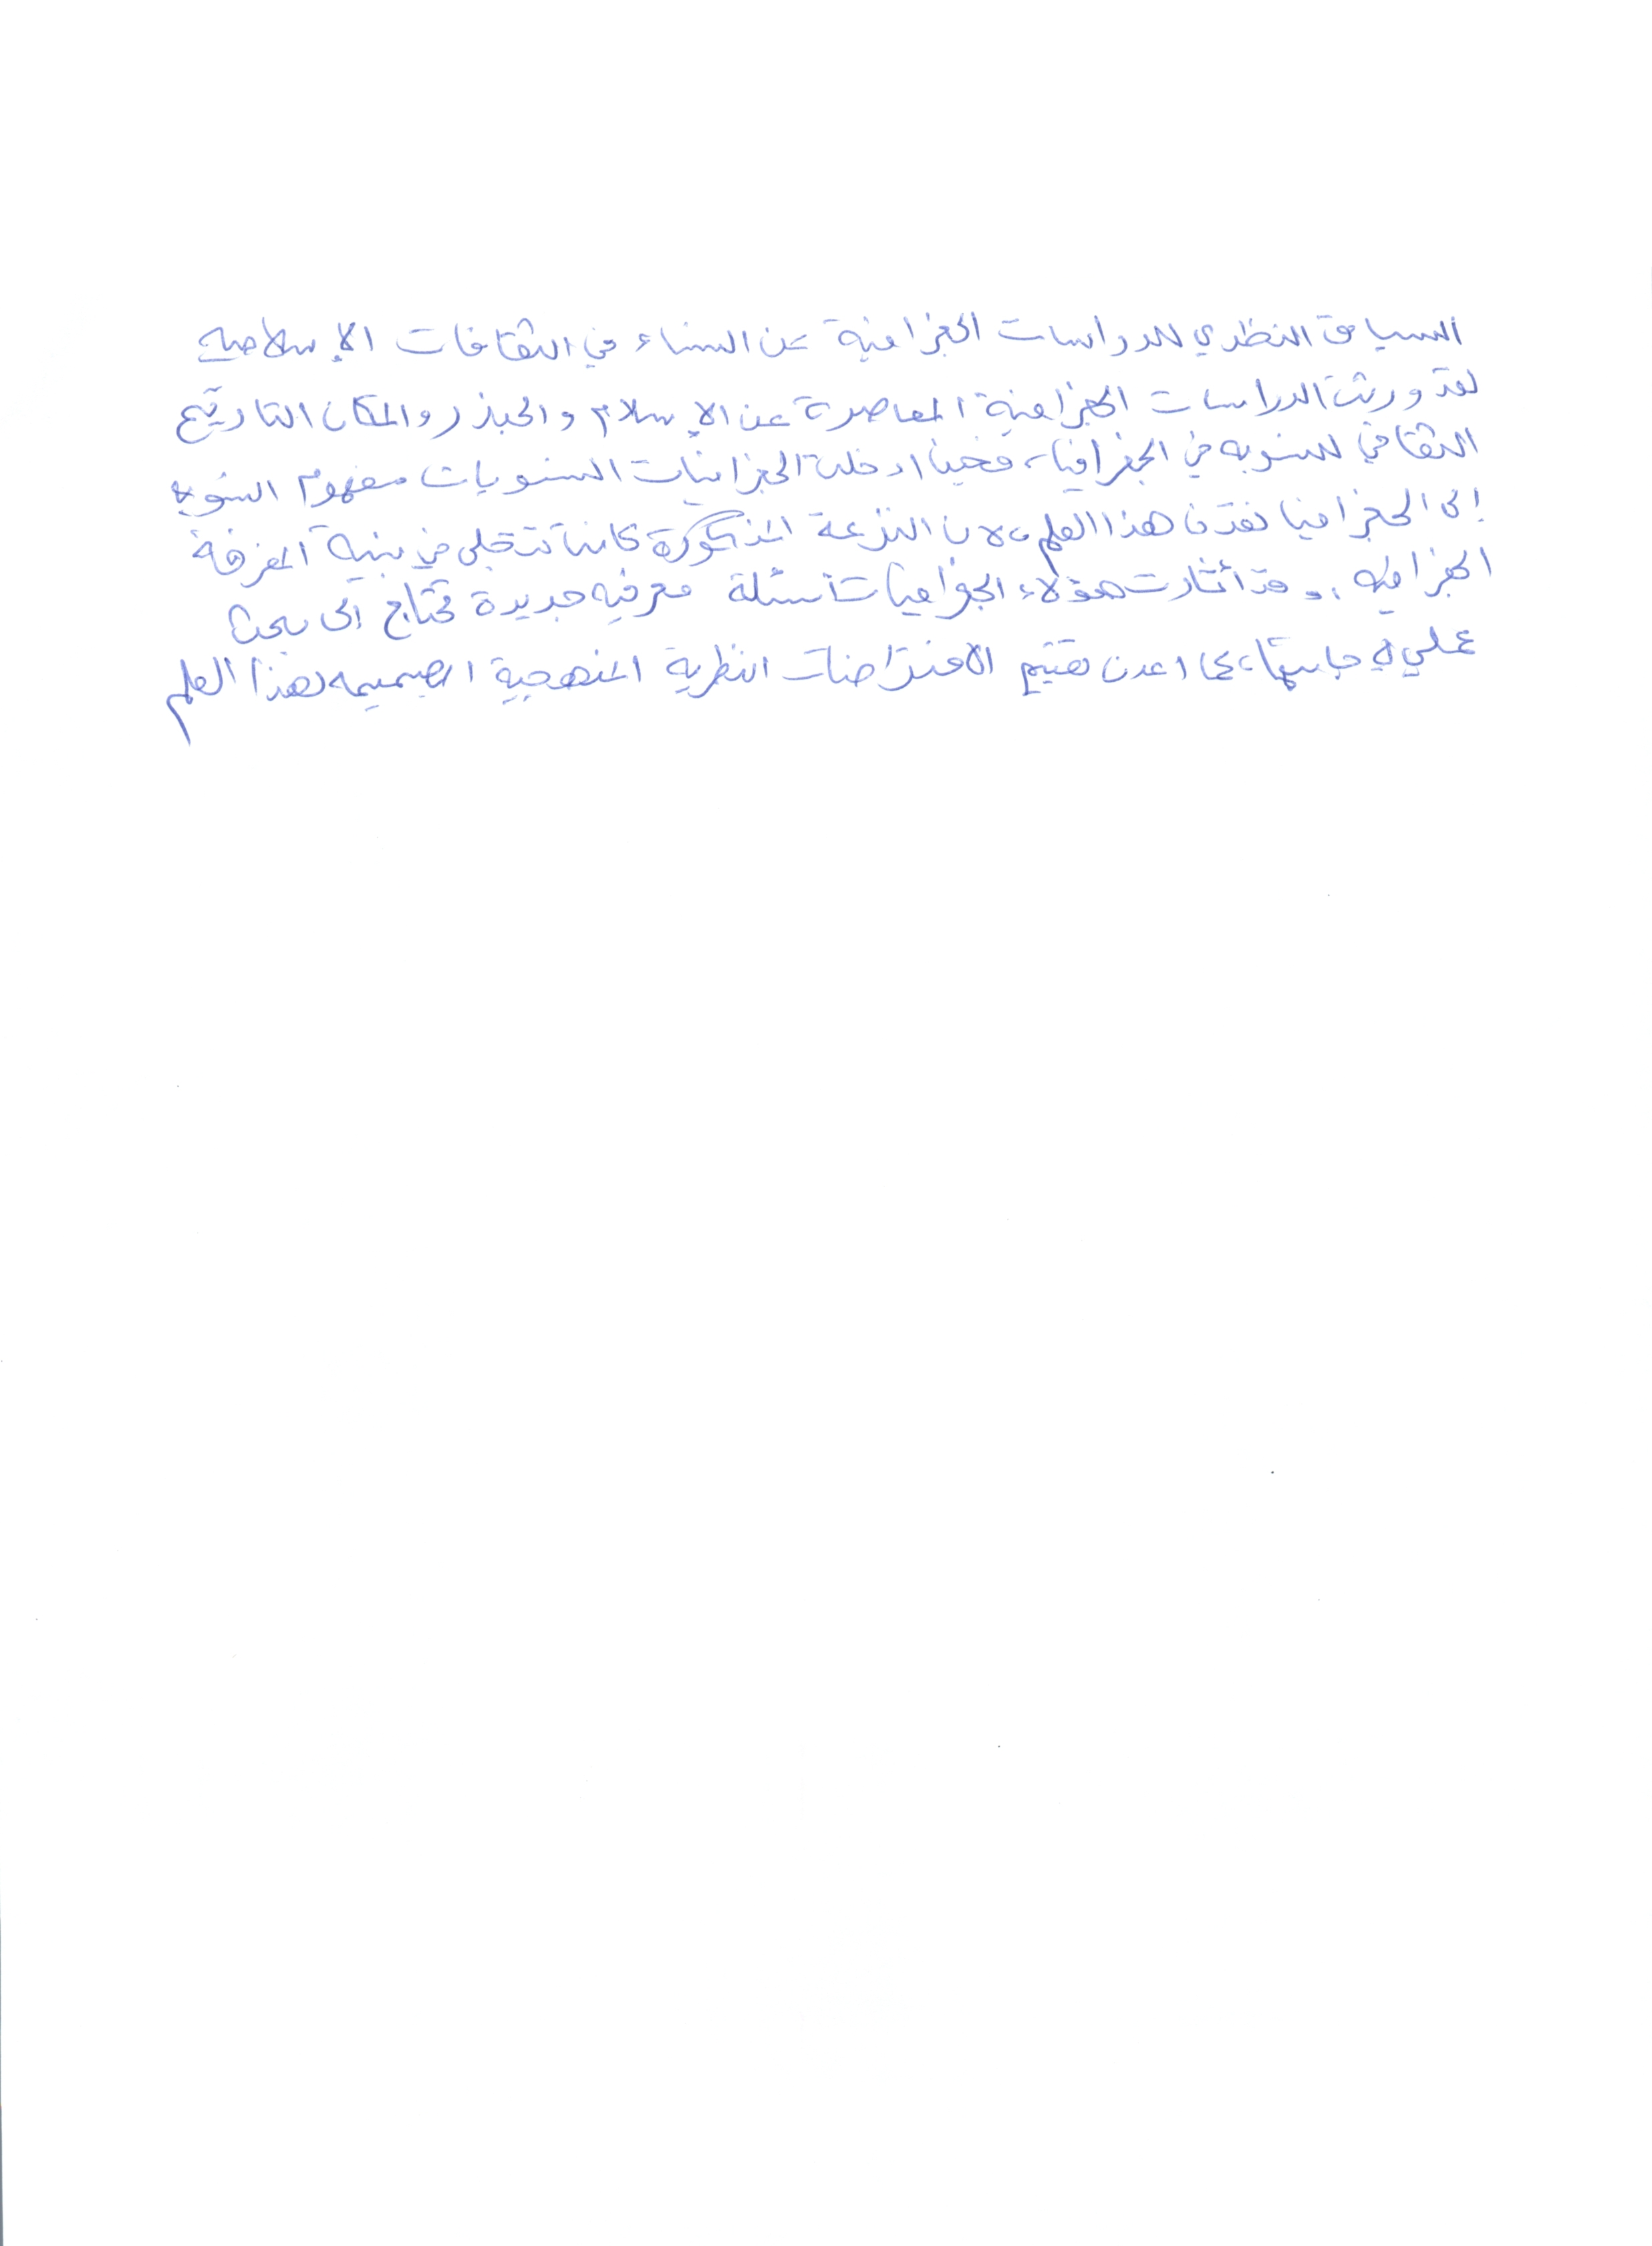 السياق النظري للدراسات الجغرافية عن النساء في الثقافات الإسلامية
لقد ورثت الدراسات الجغرافية المعاصرة عن الإسلام والجندر والمكان التاريخ
الثقافي للنسوية في الجغرافيا، فحينما ادخلت الجغرافيات النسويات مفهوم النسوية
إلى الجغرافيا نقدن هذا العلم، لان النزعة المذكورة كانت تتجلى في بنية المعرفة
الجغرافية. وقد أثارت هؤلاء الجغرافيات أسئلة معرفية جديدة تحتاج إلى بحث
عملي لإجابتها، كما اعدن تقييم الافتراضات النظرية المنهجية الصميمه لهذا العلم